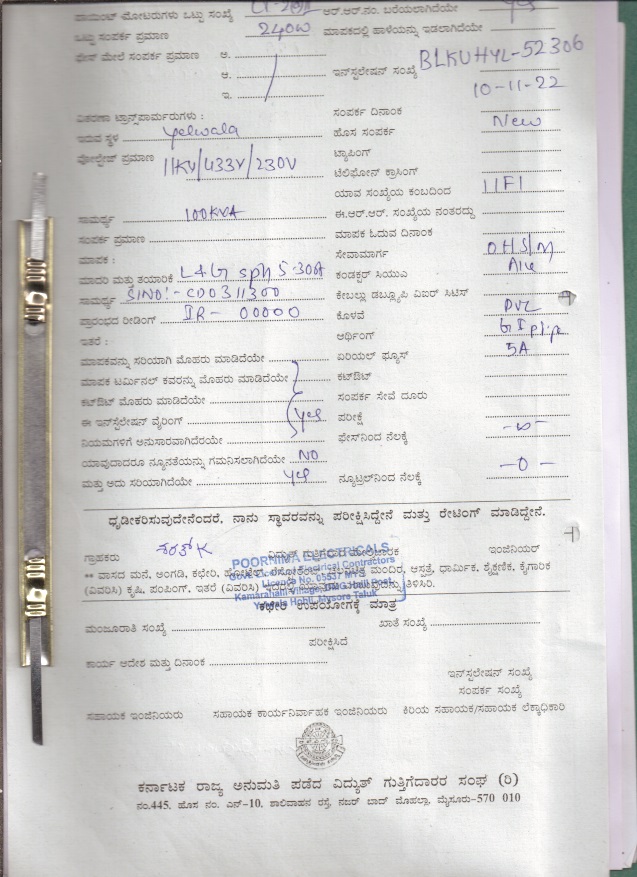 ಪಾಯಿಂಟ್ ಮೋಟರುಗಳು ಒಟ್ಟು ಸಂಖ್ಯೆ ಆರ್.ಆರ್.ನಂ. ಬರೆಯಲಾಗಿದೆಯೇ Yes
ಒಟ್ಟು ಸಂಪರ್ಕ ಪ್ರಮಾಣ 240W ಮಾಪಕದಲ್ಲಿ ಹಾಳೆಯನ್ನು ಇಡಲಾಗಿದೆಯೇ
ಫೇಸ್ ಮೇಲೆ ಸಂಪರ್ಕ ಪ್ರಮಾಣ ಆ.
ಆ. ಇನ್‌ಸ್ಟಲೇಷನ್ ಸಂಖ್ಯೆ BLKUHYL-52306
ಇ. 10-11-22
ವಿತರಣಾ ಟ್ರಾನ್ಸ್‌ಫಾರ್ಮರುಗಳು : ಸಂಪರ್ಕ ದಿನಾಂಕ
ಇರುವ ಸ್ಥಳ Yelwala ಹೊಸ ಸಂಪರ್ಕ New
ವೋಲ್ಟೇಜ್ ಪ್ರಮಾಣ 11KV/433V/230V ಟ್ಯಾಪಿಂಗ್
ಟೆಲಿಫೋನ್ ಕ್ರಾಸಿಂಗ್
ಯಾವ ಸಂಖ್ಯೆಯ ಕಂಬದಿಂದ
ಸಾಮರ್ಥ್ಯ 100KVA ಈ.ಆರ್.ಆರ್. ಸಂಖ್ಯೆಯ ನಂತರದ್ದು
ಸಂಪರ್ಕ ಪ್ರಮಾಣ ಮಾಪಕ ಓದುವ ದಿನಾಂಕ
ಮಾಪಕ : ಸೇವಾಮಾರ್ಗ
ಮಾದರಿ ಮತ್ತು ತಯಾರಿಕೆ L&G Sph 5-30A ಕಂಡಕ್ಟರ್ ಸಿಯುಎ
ಸಾಮರ್ಥ್ಯ Sl NO:- CD0311300 ಕೇಬಲ್ಲು ಡಬ್ಲ್ಯೂಪಿ ವಿಐಆರ್ ಸಿಟಿಎಸ್
ಪ್ರಾರಂಭದ ರೀಡಿಂಗ್ IR- 00000 ಕೊಳವೆ PVC
ಇತರೆ : ಅರ್ಥಿಂಗ್ GI pipe
ಮಾಪಕವನ್ನು ಸರಿಯಾಗಿ ಮೊಹರು ಮಾಡಿದೆಯೇ ಏರಿಯಲ್ ಫ್ಯೂಸ್ 5A
ಮಾಪಕ ಟರ್ಮಿನಲ್ ಕವರನ್ನು ಮೊಹರು ಮಾಡಿದೆಯೇ ಕಟ್‌ಔಟ್
ಕಟ್‌ಔಟ್ ಮೊಹರು ಮಾಡಿದೆಯೇ ಸಂಪರ್ಕ ಸೇವೆ ದೂರು
ಈ ಇನ್‌ಸ್ಟಲೇಷನ್ ವೈರಿಂಗ್ Yes ಪರೀಕ್ಷೆ
ನಿಯಮಗಳಿಗೆ ಅನುಸಾರವಾಗಿದೆರಯೇ ಫೇಸ್‌ನಿಂದ ನೆಲಕ್ಕೆ
ಯಾವುದಾದರೂ ನ್ಯೂನತೆಯನ್ನು ಗಮನಿಸಲಾಗಿದೆಯೇ NO
ಮತ್ತು ಅದು ಸರಿಯಾಗಿದೆಯೇ Yes ನ್ಯೂಟ್ರಲ್‌ನಿಂದ ನೆಲಕ್ಕೆ -0-
ಧೃಡೀಕರಿಸುವುದೇನೆಂದರೆ, ನಾನು ಸ್ಥಾವರವನ್ನು ಪರೀಕ್ಷಿಸಿದ್ದೇನೆ ಮತ್ತು ರೇಟಿಂಗ್ ಮಾಡಿದ್ದೇನೆ.
ಗ್ರಾಹಕರು ವಿದ್ಯುತ್ ಗುತ್ತಿಗೆದಾರ ಮೇಲ್ವಿಚಾರಕ ಇಂಜಿನಿಯರ್
POORNIMA ELECTRICALS
Govt. Licenced Electrical Contractors
Licence No. 05537 MYS
Kamarahalli Village, DMG Halli Post
Yelwala Hobli, Mysore Taluk
** ವಾಸದ ಮನೆ, ಅಂಗಡಿ, ಕಛೇರಿ, ಹೋಟೆಲ್, ಮಂದಿರ, ಆಸ್ಪತ್ರೆ, ಧಾರ್ಮಿಕ, ಶೈಕ್ಷಣಿಕ, ಕೈಗಾರಿಕ
(ವಿವರಿಸಿ) ಕೃಷಿ, ಪಂಪಿಂಗ್, ಇತರೆ (ವಿವರಿಸಿ) ತಿಳಿಸಿರಿ.
ಕಛೇರಿ ಉಪಯೋಗಕ್ಕೆ ಮಾತ್ರ
ಮಂಜೂರಾತಿ ಸಂಖ್ಯೆ ಖಾತೆ ಸಂಖ್ಯೆ
ಪರೀಕ್ಷಿಸಿದೆ
ಕಾರ್ಯ ಆದೇಶ ಮತ್ತು ದಿನಾಂಕ
ಇನ್‌ಸ್ಟಲೇಷನ್ ಸಂಖ್ಯೆ
ಸಂಪರ್ಕ ಸಂಖ್ಯೆ
ಸಹಾಯಕ ಇಂಜಿನಿಯರು ಸಹಾಯಕ ಕಾರ್ಯನಿರ್ವಾಹಕ ಇಂಜಿನಿಯರು ಕಿರಿಯ ಸಹಾಯಕ/ಸಹಾಯಕ ಲೆಕ್ಕಾಧಿಕಾರಿ
ಕರ್ನಾಟಕ ರಾಜ್ಯ ಅನುಮತಿ ಪಡೆದ ವಿದ್ಯುತ್ ಗುತ್ತಿಗೆದಾರರ ಸಂಘ (ರಿ)
ನಂ.445, ಹೊಸ ನಂ. ಎನ್-10, ಶಾಲಿವಾಹನ ರಸ್ತೆ, ನಜರ್ ಬಾದ್ ಮೊಹಲ್ಲಾ, ಮೈಸೂರು-570 010